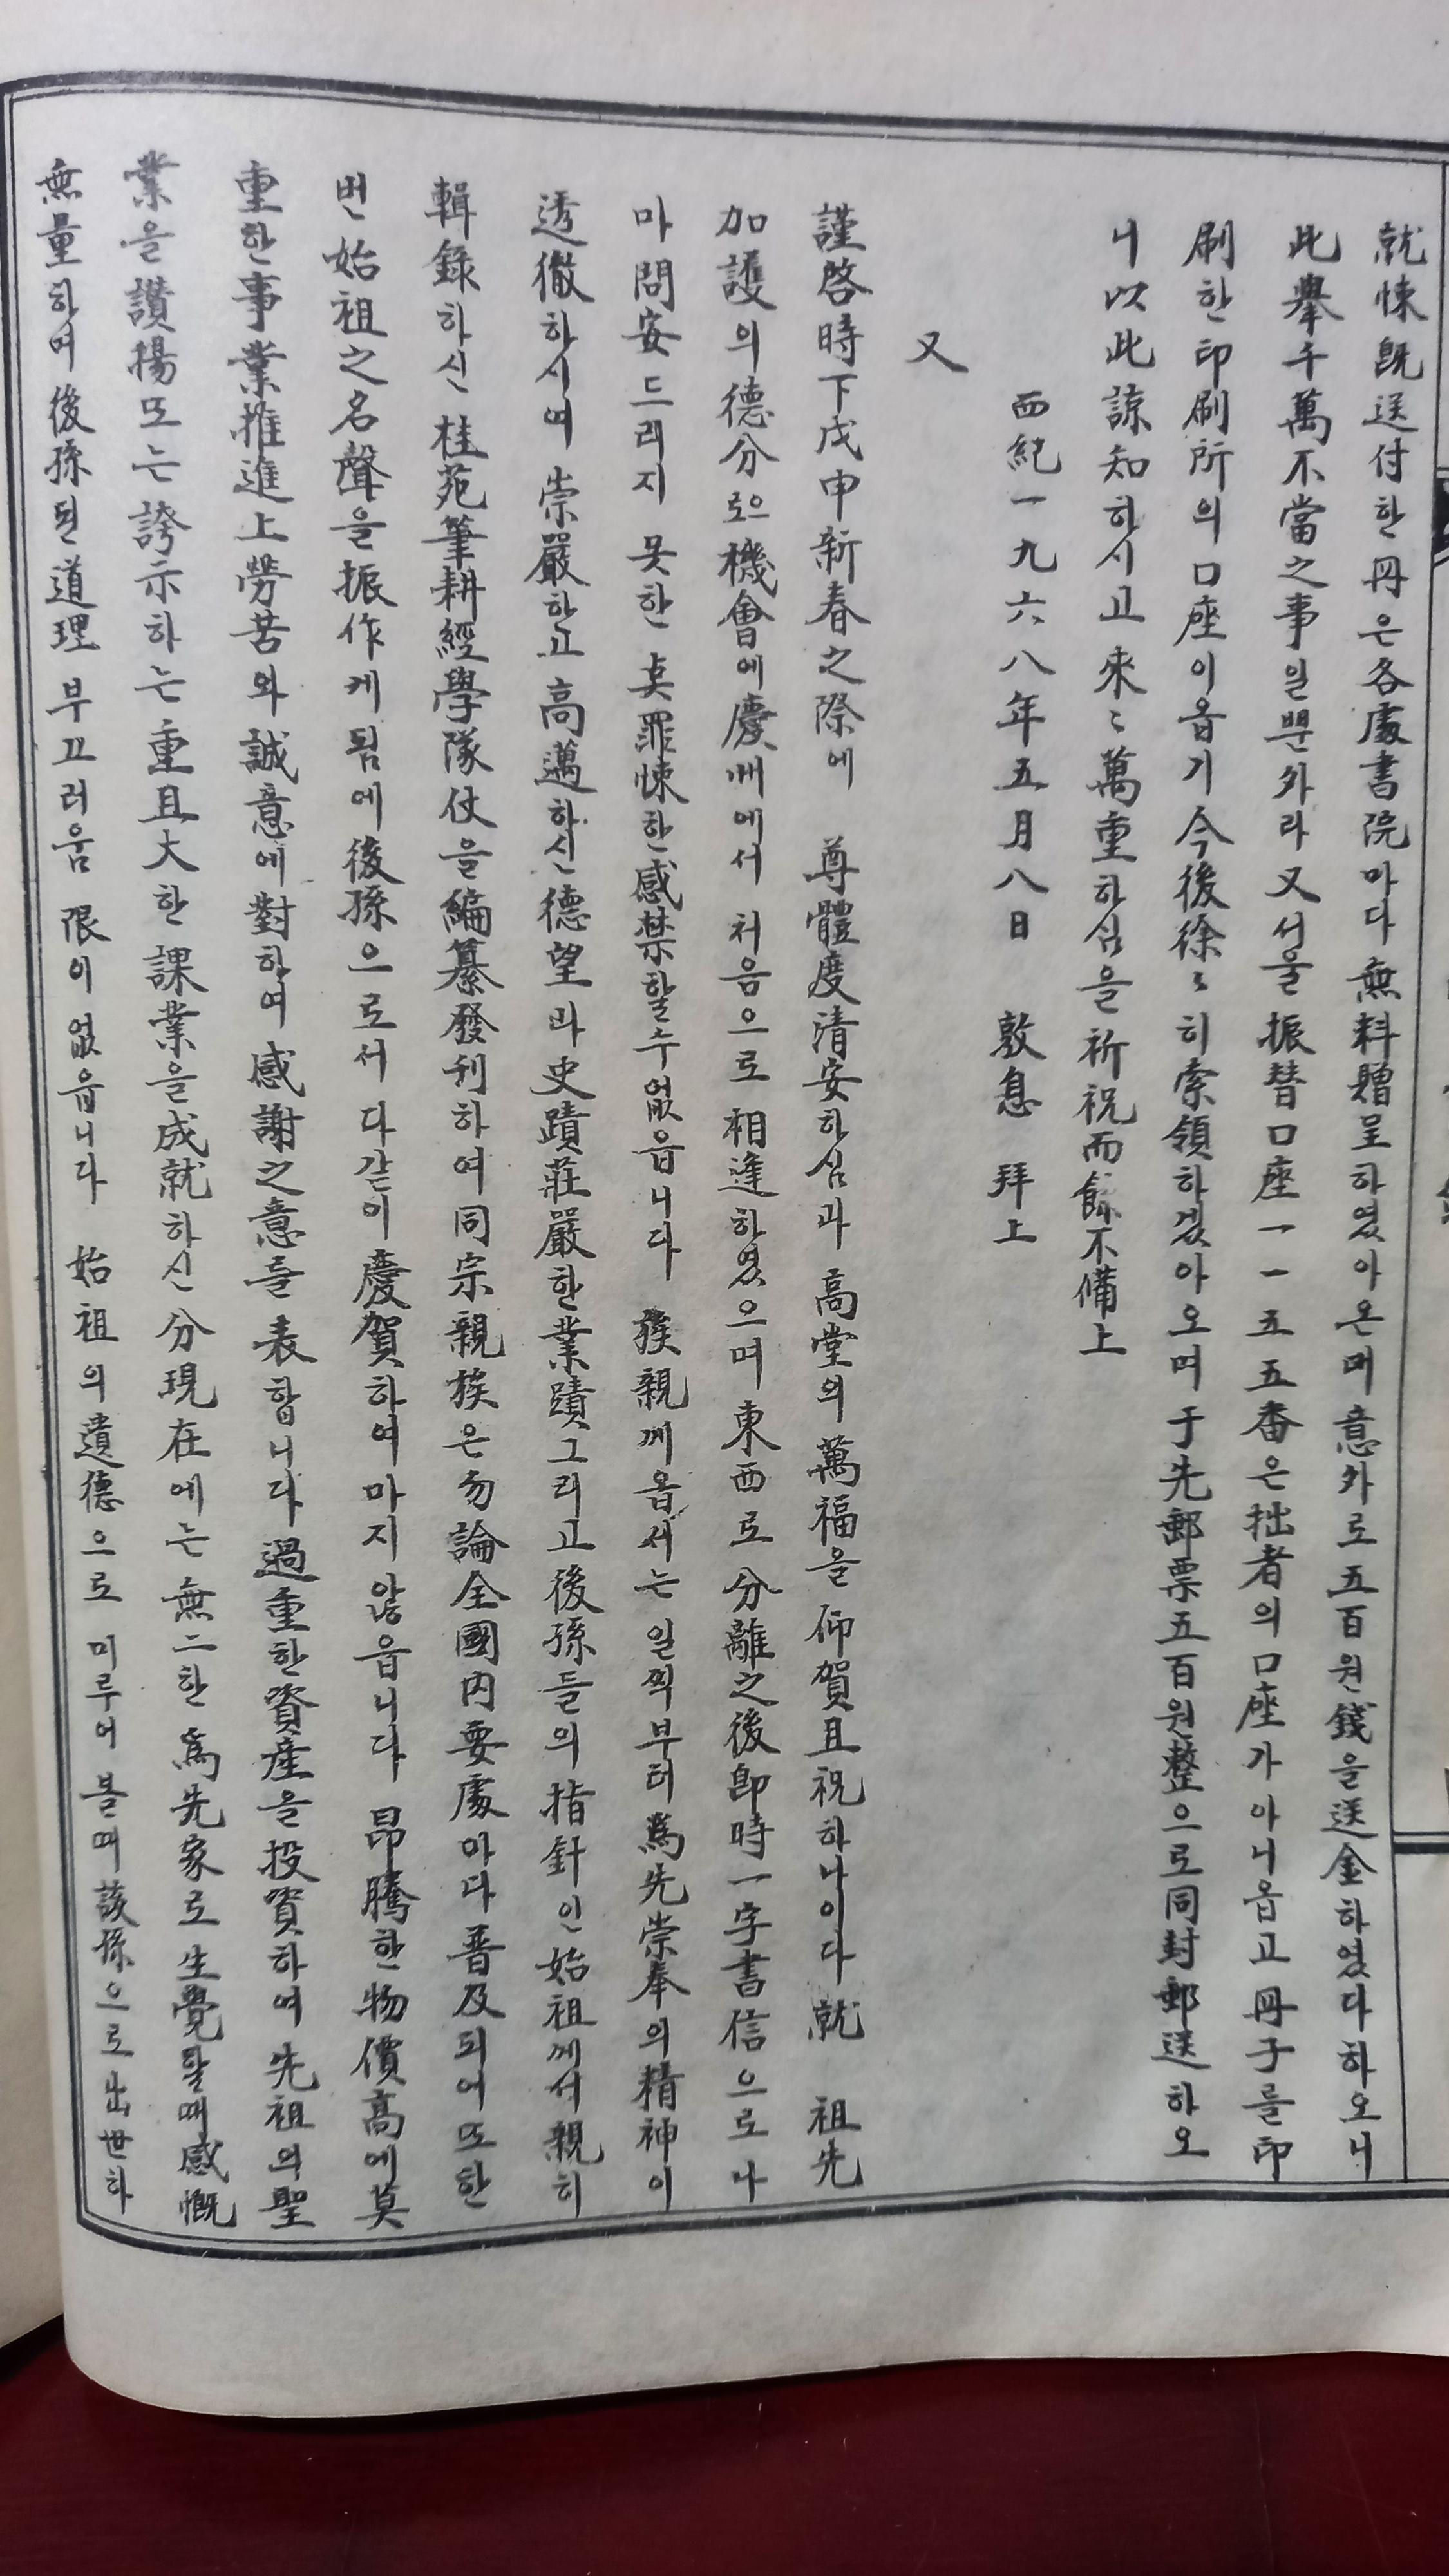 就悚旣送付한冊은各處書院마다無料贈呈하였아온매意外로五百원錢을送金하였다하오니
此擧千萬不當之事일뿐外라又서울振替口座一一五五番은拙者의口座가아니옵고冊子를印
刷한印刷所의口座이옵기今後徐〻히索領하겠아오며于先郵票五百원整으로同封郵送하오
니以此諒知하시고來〻萬重하심을祈祝而餘不備上
西紀一九六八年五月八日 敦息 拜上
又
謹啓時下戊申新春之際에 尊體度淸安하심과 高堂의萬福을仰賀且祝하나이다就 祖先
加護의德分로으機會에慶州에서처음으로相逢하였으며東西로分離之後卽時一字書信으로나
마問安드리지못한 罪悚한感禁할수없읍니다 族親께옵서는일찍부터爲先崇奉의精神이
透徹하시며崇嚴하고高邁하신德望과史蹟莊嚴한業蹟그리고後孫들의指針인始祖께서親히
輯錄하신桂苑筆耕經學隊仗을編纂發刊하여同宗親族은勿論全國內要處마다普及되어또한
번始祖之名聲을振作케됨에後孫으로서다같이慶賀하여마지않읍니다昂騰한物價高에莫
重한事業推進上勞苦와誠意에對하여感謝之意를表합니다過重한資産을投資하여先祖의聖
業을讚揚또는誇示하는重且大한課業을成就하신分現在에는無二한爲先家로生覺할때感慨
無量하며後孫된道理부끄러움限이없읍니다 始祖의遺德으로미루어볼때該孫으로出世하